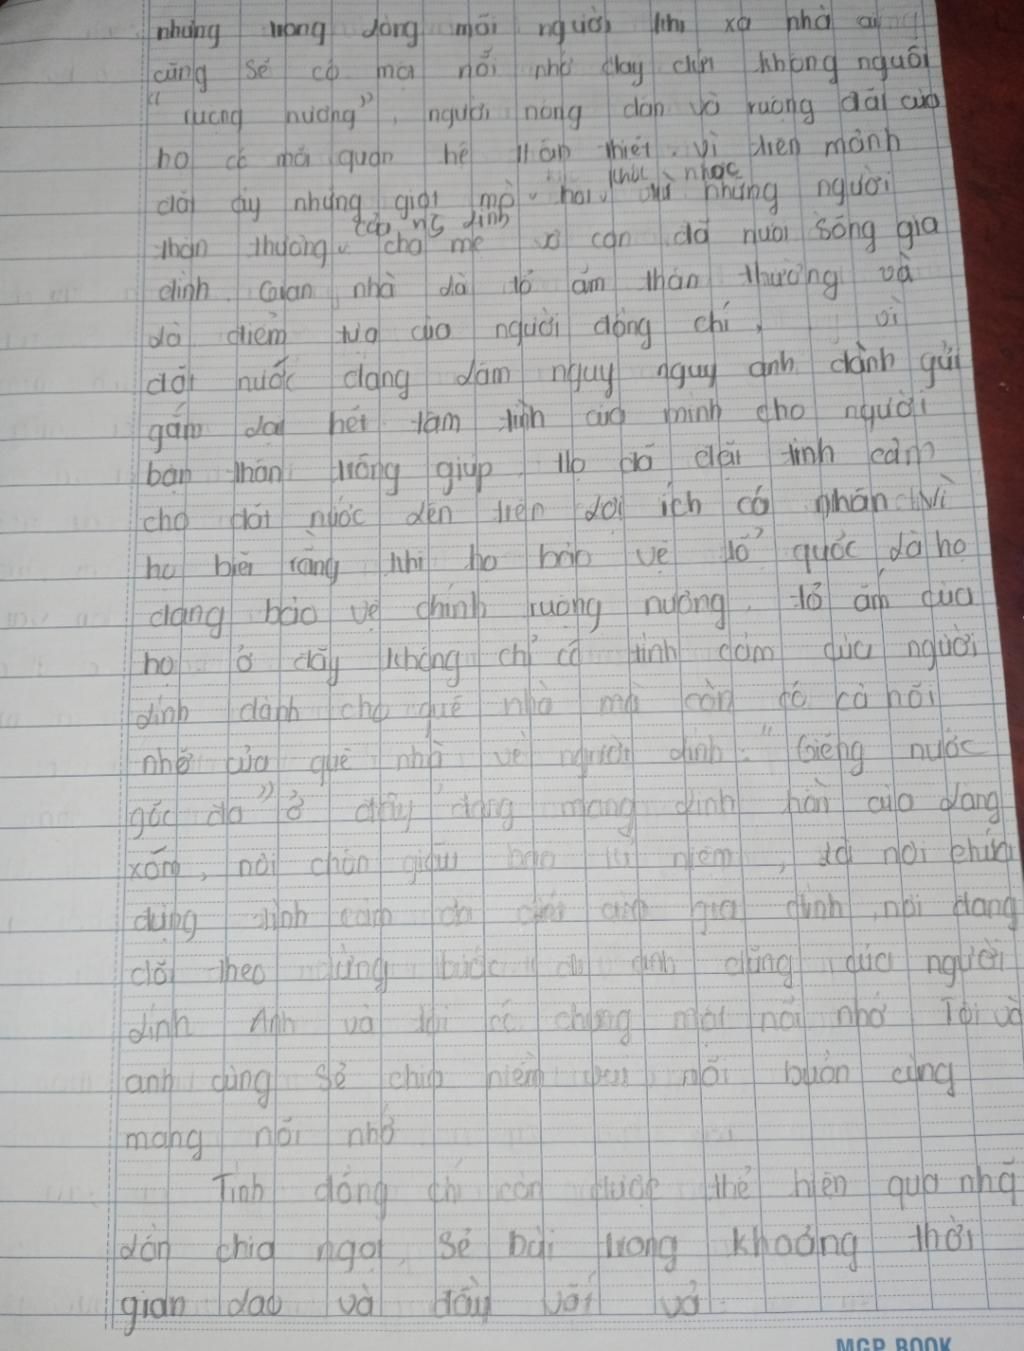 nhưng trong lòng mỗi người khi xa nhà ai
cũng sẽ có một nỗi nhớ day dứt không nguôi
"ruộng nương", người nông dân và ruộng đất của
họ có mối quan hệ thân thiết. Vì trên mảnh
đất ấy những giọt mồ hôi, khúc nhọc của những người
thân thương, cha mẹ vợ con đã nuôi sống gia
đình. Gian nhà là tổ ấm thân thương và
là điểm tựa của người đồng chí, vì
đất nước đang lâm nguy nguy anh đành gửi
gắm lại hết tâm tình của mình cho người
bạn thân trông giúp. Họ đã đặt tình cảm
cho đất nước lên trên lợi ích cá nhân. Vì
họ biết rằng khi họ bảo vệ tổ quốc là họ
đang bảo vệ chính ruộng nương, tổ ấm của
họ ở đây không chỉ có tình cảm của người
lính dành cho quê nhà mà còn có cả nỗi
nhớ của quê nhà về người lính. "Giếng nước
gốc đa" ở đây đang mang linh hồn của làng
xóm, nơi chôn giấu bao kỉ niệm, là nơi chứa
đựng tình cảm của gia đình, nơi đang
dõi theo từng bước của người
lính. Anh và tôi có chung một nỗi nhớ. Tôi và
anh cùng sẻ chia niềm vui nỗi buồn cùng
mang nỗi nhớ
Tình đồng chí còn được thể hiện qua những
lần chia ngọt, sẻ bùi trong khoảng thời
gian lao và đầy vất vả.
MGP BOOK